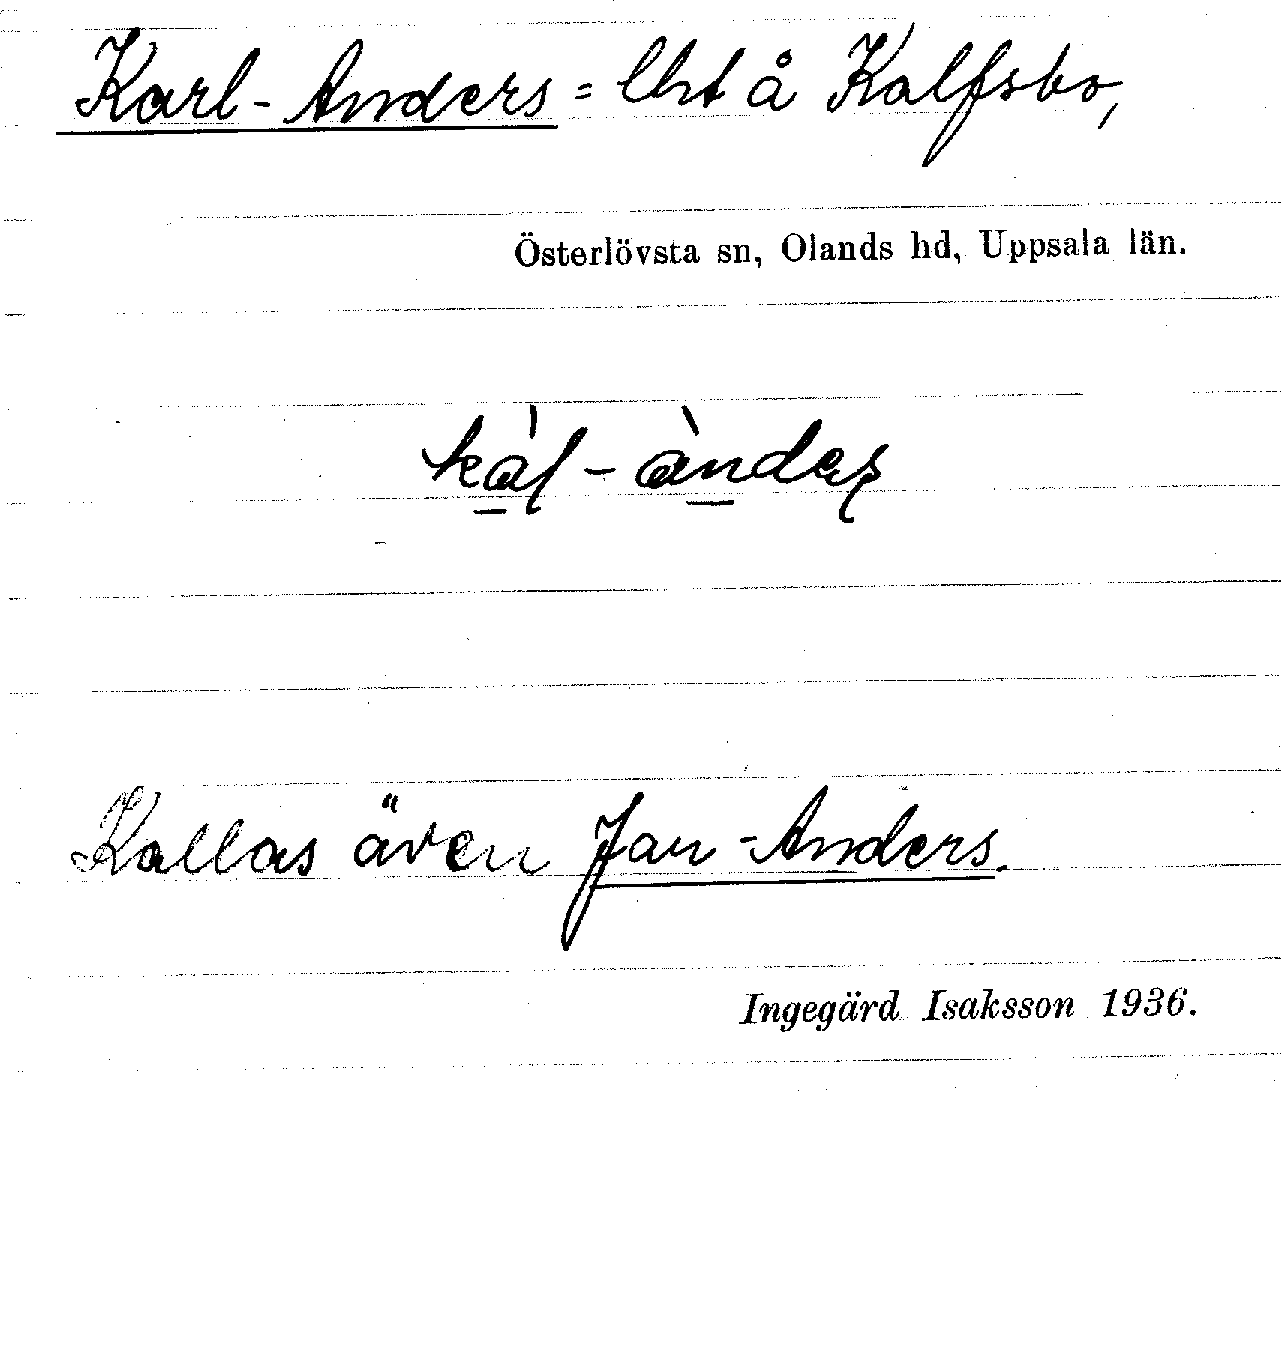 Karl-Anders = lht å Kalfsbo,
Österlövsta sn, Olands hd, Uppsala län.
kàl-àndeʂ
Kallas även Jan-Anders.
Ingegärd Isaksson 1936.